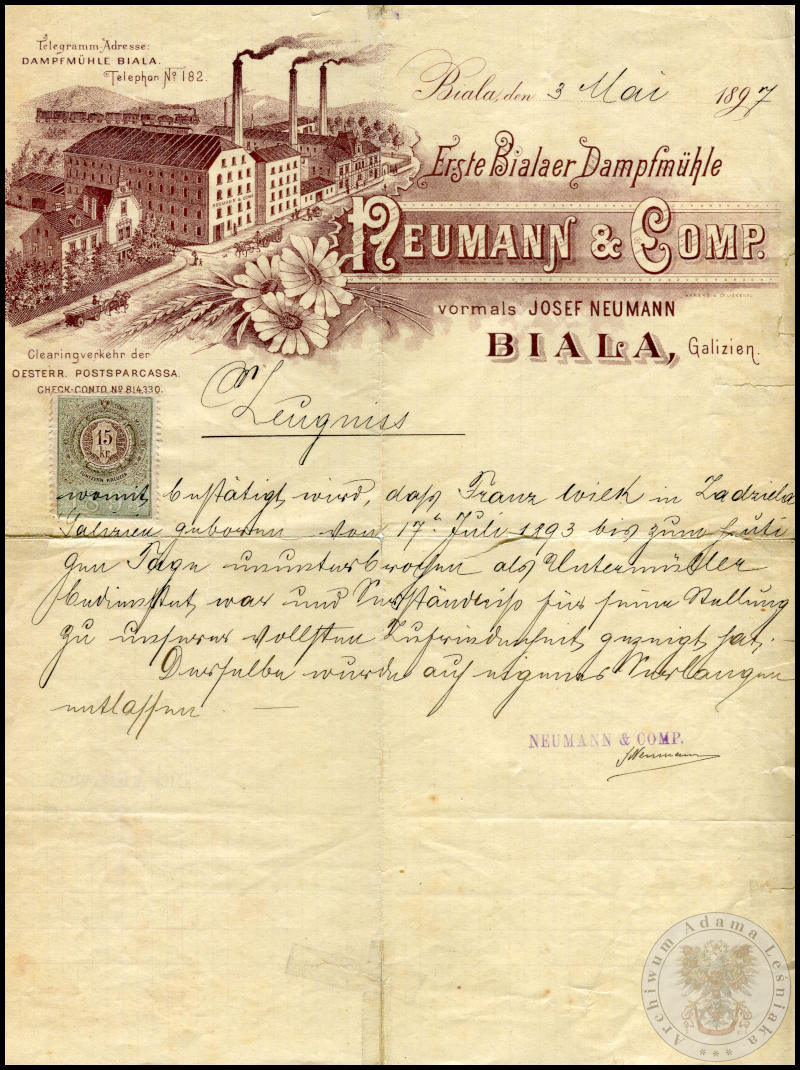 Telegramm-Adresse:
DAMPFMÜHLE BIALA.
Telephon No 182.
Biala, den 3 Mai 1897
Erste Bialaer Dampfmühle
NEUMANN & COMP.
NEUMANN & COMP.
vormals JOSEF NEUMANN
BIALA, Galizien.
Clearingverkehr der
OESTERR. POSTSPARCASSA.
CHECK-CONTO No 814330.
Zeugniss
15
kr.
womit bestätigt wird, daß Franz Wilk in Zadziele
Galizien geboren von 17t Juli 1893 bis zum heuti
gen Tage ununterbrochen als Untermüller
bedienstet war und Verständniß für seine Stellung
zu unserer vollsten Zufriedenheit gezeigt hat. -
Derselbe wurde auf eigenes Verlangen
entlassen. —
NEUMANN & COMP.
JNeumann
Archiwum Adama Leśniaka